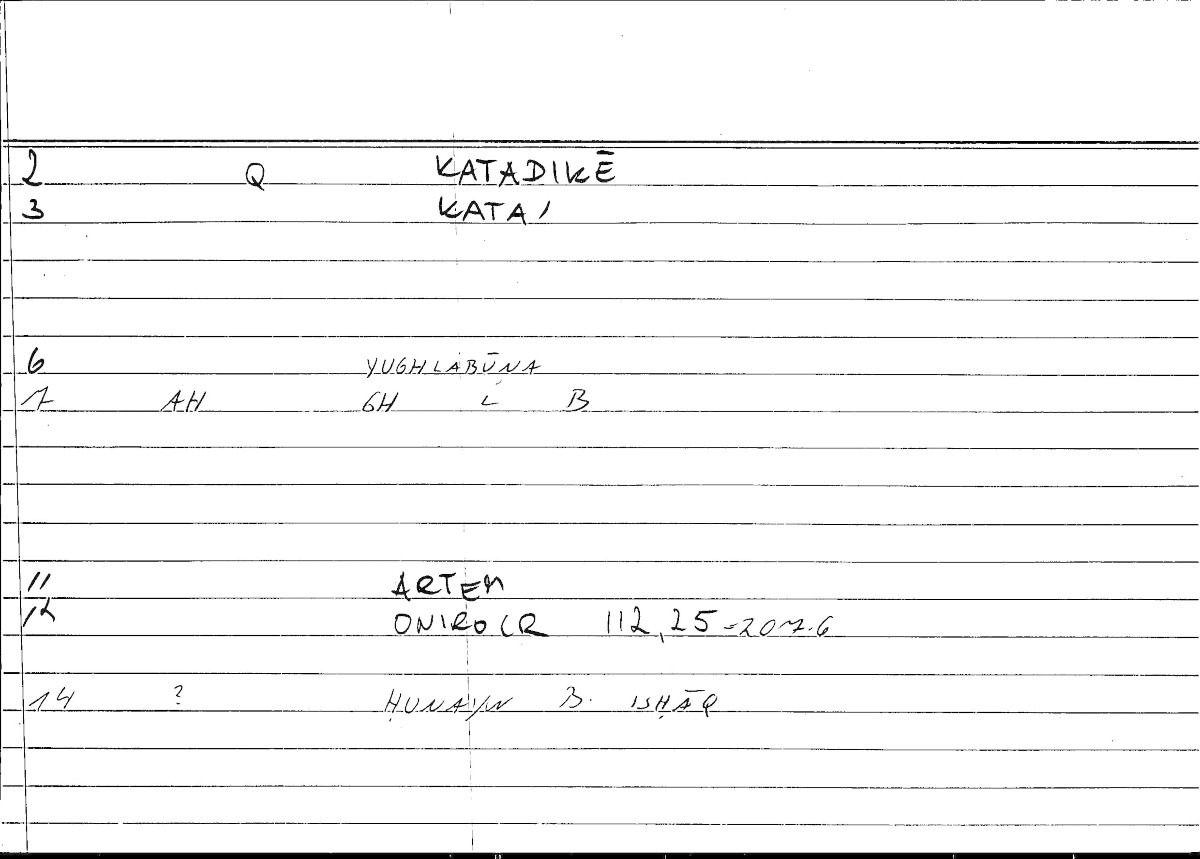 2 Q KATADIKĒ
3 KATA/
6 YUGHLABŪNA
7 AH GH L B
11 ARTEM
12 ONIROCR 112,25 = 207.6
14 ? ḤUNAYN B. ISḤĀQ